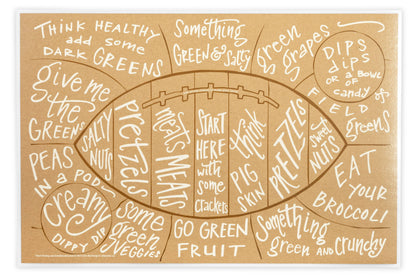 THINK HEALTHY
add some
DARK GREENS
Something
GREEN & Salty
green
grapes
DIPS
dips
OR A BOWL
OF
candy
give me
the
GREENS
SALTY
NUTS
Pretzels
meats
MEATS
START
HERE
with
some
crackers
think
PIG
SKIN
PRETZELS
sweet
NUTS
FIELD of
greens
PEAS
IN A POD
creamy
DIPPY DIP
Some
green
VEGGIES
GO GREEN
FRUIT
Something
green AND crunchy
EAT
YOUR
BROCCOLI